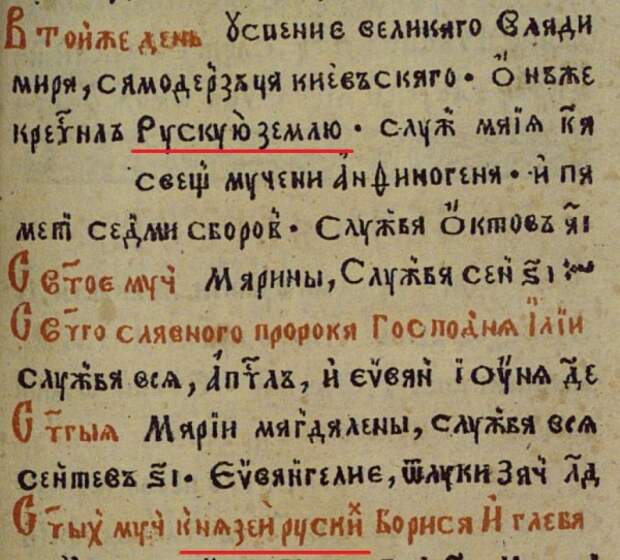 В тойже день Оуспение великаго Влади
мира, самодер́зъца киевъскаго· Ѡ́ нъже
крес҇тилъ Рускую̀ землю· служ̾ маїа к҃а
свещ҃ мучени Анѳиногена· и̓ па
мет҃ седми сборов̾· Служ̾ба Ѡктовъ а҃і
Свет҇ое муч̾ Марины, Служ̾ба сен̾ ѕ҃і
Свет҇го славного пророка Господ̾ня Іліи
служ̾ба вся, ап҇тлъ, и̓ еѵан̾ іѹня д҃е
Ст҇гыя Маріи маг̾далены, служ̾ба вся
сен̾тевъ ѕ҃і· Еѵан̾гелие, ѿлуки Зач̾ л҃д
Ст҇ыхъ муч̾ кн̾язей руский Бориса И̓ глеба